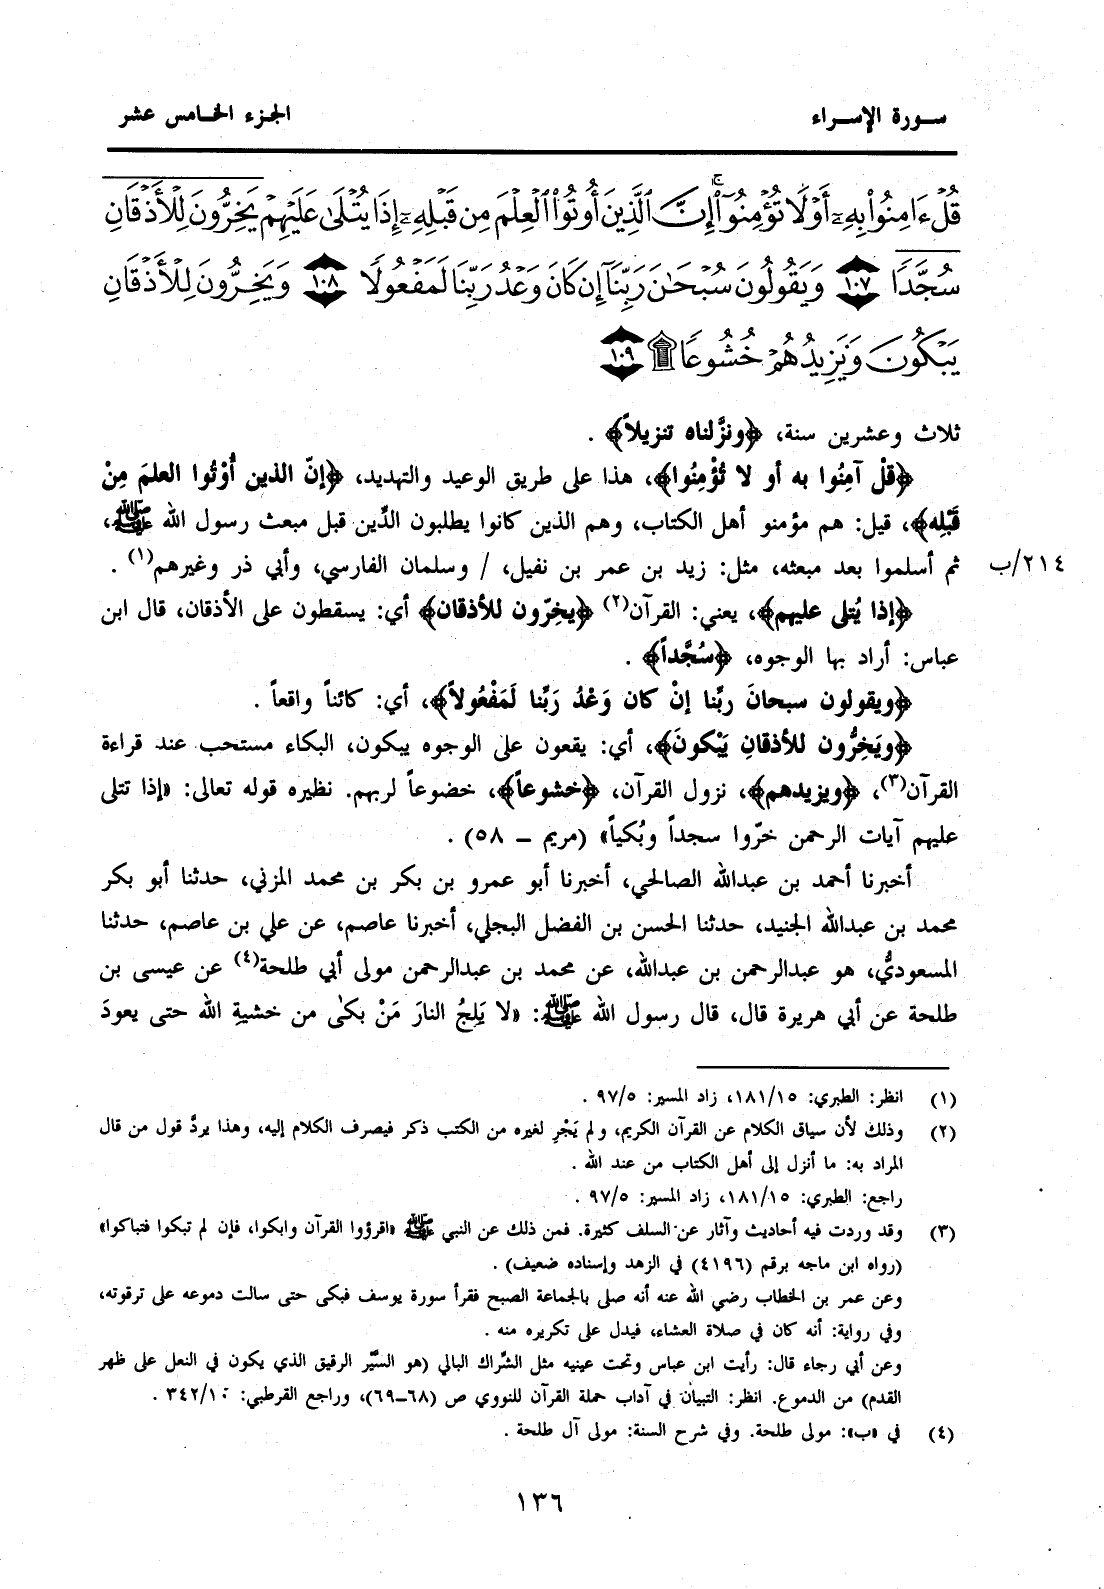 سورة الإسراء
الجزء الخامس عشر
قُلْ ءَامِنُوا۟ بِهِۦٓ أَوْ لَا تُؤْمِنُوٓا۟ ۚ إِنَّ ٱلَّذِينَ أُوتُوا۟ ٱلْعِلْمَ مِن قَبْلِهِۦٓ إِذَا يُتْلَىٰ عَلَيْهِمْ يَخِرُّونَ لِلْأَذْقَانِ
سُجَّدًا ١٠٧ وَيَقُولُونَ سُبْحَـٰنَ رَبِّنَآ إِن كَانَ وَعْدُ رَبِّنَا لَمَفْعُولًا ١٠٨ وَيَخِرُّونَ لِلْأَذْقَانِ
يَبْكُونَ وَيَزِيدُهُمْ خُشُوعًا ۩ ١٠٩
ثلاث وعشرين سنة، ﴿ونزَّلناه تنزيلاً﴾ .
﴿قلْ آمِنُوا به أو لا تُؤْمِنُوا﴾، هذا على طريق الوعيد والتهديد، ﴿إنّ الذين أُوْتُوا العلمَ مِنْ
قَبْلِه﴾، قيل: هم مؤمنو أهل الكتاب، وهم الذين كانوا يطلبون الدِّين قبل مبعث رسول الله ﷺ،
ثم أسلموا بعد مبعثه، مثل: زيد بن عمر بن نفيل، / وسلمان الفارسي، وأبي ذر وغيرهم(١) .
٢١٤/ب
﴿إذا يُتلى عليهم﴾، يعني: القرآن(٢) ﴿يخِرّون للأذقان﴾ أي: يسقطون على الأذقان، قال ابن
عباس: أراد بها الوجوه، ﴿سُجَّداً﴾ .
﴿ويقولون سبحانَ ربِّنا إنْ كان وَعْدُ رَبِّنا لَمَفْعُولاً﴾، أي: كائناً واقعاً .
﴿ويَخِرُّون للأذقانِ يَبْكونَ﴾، أي: يقعون على الوجوه يبكون، البكاء مستحب عند قراءة
القرآن(٣)، ﴿ويزيدهم﴾، نزول القرآن، ﴿خشوعاً﴾، خضوعاً لربهم. نظيره قوله تعالى: «إذا تتلى
عليهم آيات الرحمن خرّوا سجداً وبُكياً» (مريم – ٥٨) .
أخبرنا أحمد بن عبدالله الصالحي، أخبرنا أبو عمرو بن بكر بن محمد المزني، حدثنا أبو بكر
محمد بن عبدالله الجنيد، حدثنا الحسن بن الفضل البجلي، أخبرنا عاصم، عن علي بن عاصم، حدثنا
المسعوديُّ، هو عبدالرحمن بن عبدالله، عن محمد بن عبدالرحمن مولى أبي طلحة(٤) عن عيسى بن
طلحة عن أبي هريرة قال، قال رسول الله ﷺ: «لا يَلِجُ النارَ مَنْ بكىٰ من خشيةِ الله حتى يعودَ
(١) انظر: الطبري: ١٨١/١٥، زاد المسير: ٩٧/٥ .
(٢) وذلك لأن سياق الكلام عن القرآن الكريم، ولم يَجْرِ لغيره من الكتب ذكر فيصرف الكلام إليه، وهذا يردُّ قول من قال
المراد به: ما أنزل إلى أهل الكتاب من عند الله .
راجع: الطبري: ١٨١/١٥، زاد المسير: ٩٧/٥ .
(٣) وقد وردت فيه أحاديث وآثار عن السلف كثيرة. فمن ذلك عن النبي ﷺ «اقرؤوا القرآن وابكوا، فإن لم تبكوا فتباكوا»
(رواه ابن ماجه برقم (٤١٩٦) في الزهد وإسناده ضعيف) .
وعن عمر بن الخطاب رضي الله عنه أنه صلى بالجماعة الصبح فقرأ سورة يوسف فبكى حتى سالت دموعه على ترقوته،
وفي رواية: أنه كان في صلاة العشاء، فيدل على تكريره منه .
وعن أبي رجاء قال: رأيت ابن عباس وتحت عينيه مثل الشِّراك البالي (هو السَّيْر الرقيق الذي يكون في النعل على ظهر
القدم) من الدموع. انظر: التبيان في آداب حملة القرآن للنووي ص (٦٨–٦٩)، وراجع القرطبي: ٣٤٢/١٠ .
(٤) في «ب»: مولى طلحة. وفي شرح السنة: مولى آل طلحة .
١٣٦